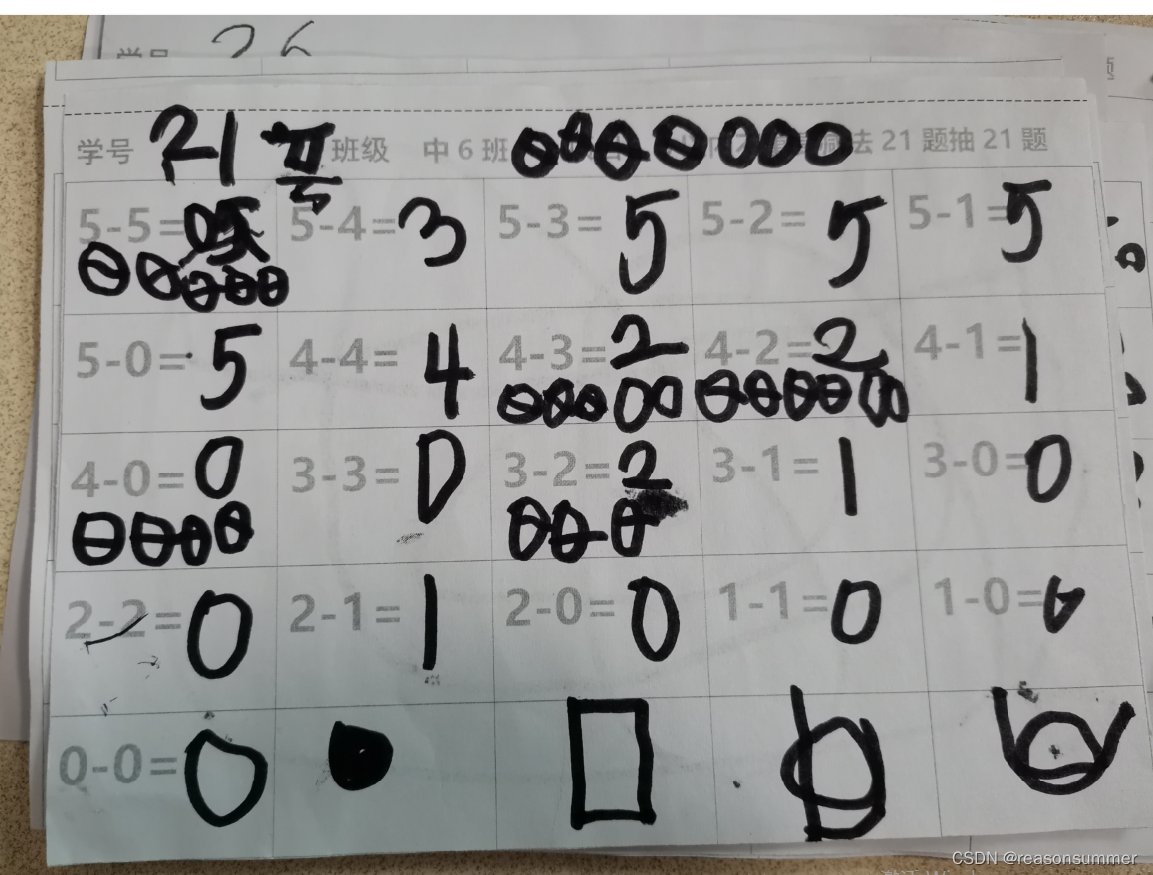 学号 26
学号 21号 班级 中6班 减法21题抽21题
5-5=0 5-4=3 5-3=5 5-2=5 5-1=5
5-0=5 4-4=4 4-3=2 4-2=2 4-1=1
4-0=0 3-3=0 3-2=2 3-1=1 3-0=0
2-2=0 2-1=1 2-0=0 1-1=0 1-0=0
0-0=0
CSDN @reasonsummer